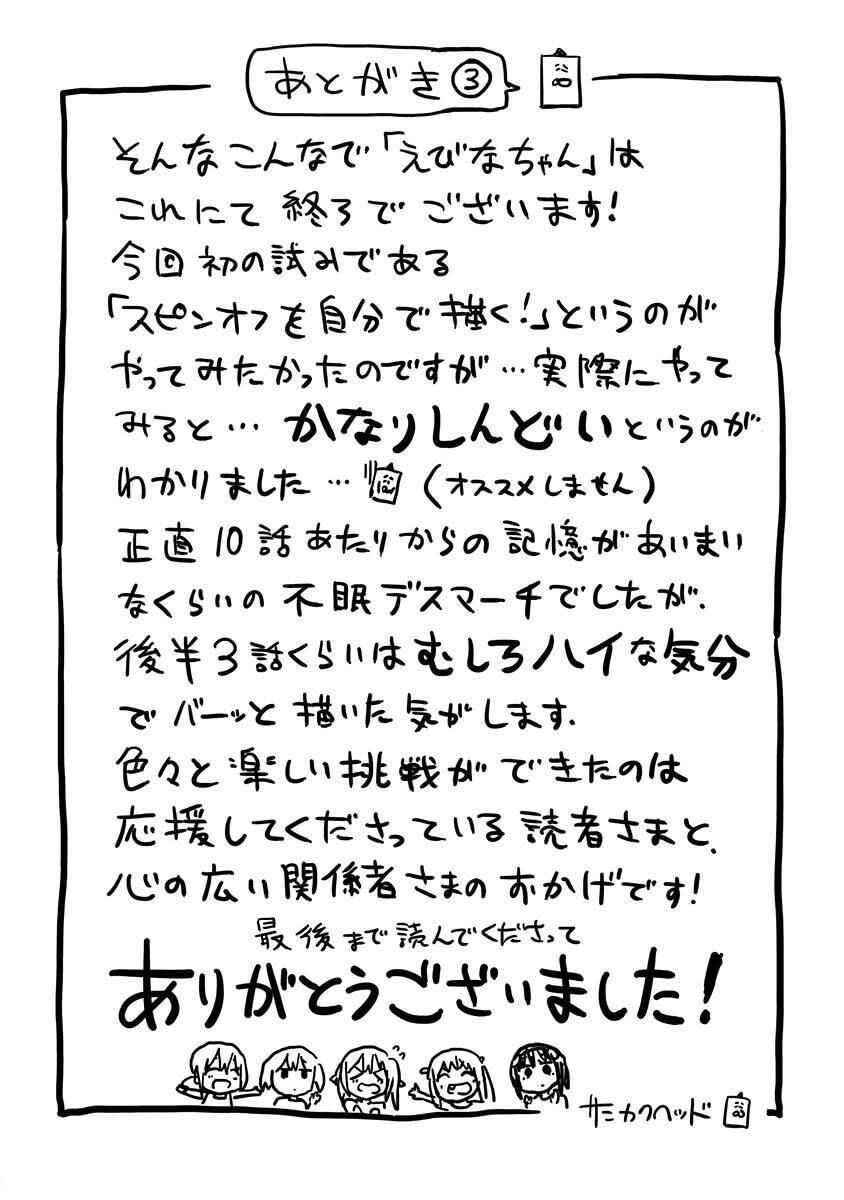 あとがき③
そんなこんなで「えびなちゃん」は
これにて終了でございます!
今回初の試みである
「スピンオフを自分で描く!」というのが
やってみたかったのですが…実際にやって
みると…かなりしんどいというのが
わかりました…(オススメしません)
正直10話あたりからの記憶があいまい
なくらいの不眠デスマーチでしたが、
後半3話くらいはむしろハイな気分
でバーッと描いた気がします。
色々と楽しい挑戦ができたのは
応援してくださっている読者さまと、
心の広い関係者さまのおかげです!
最後まで読んでくださって
ありがとうございました!
サンカクヘッド